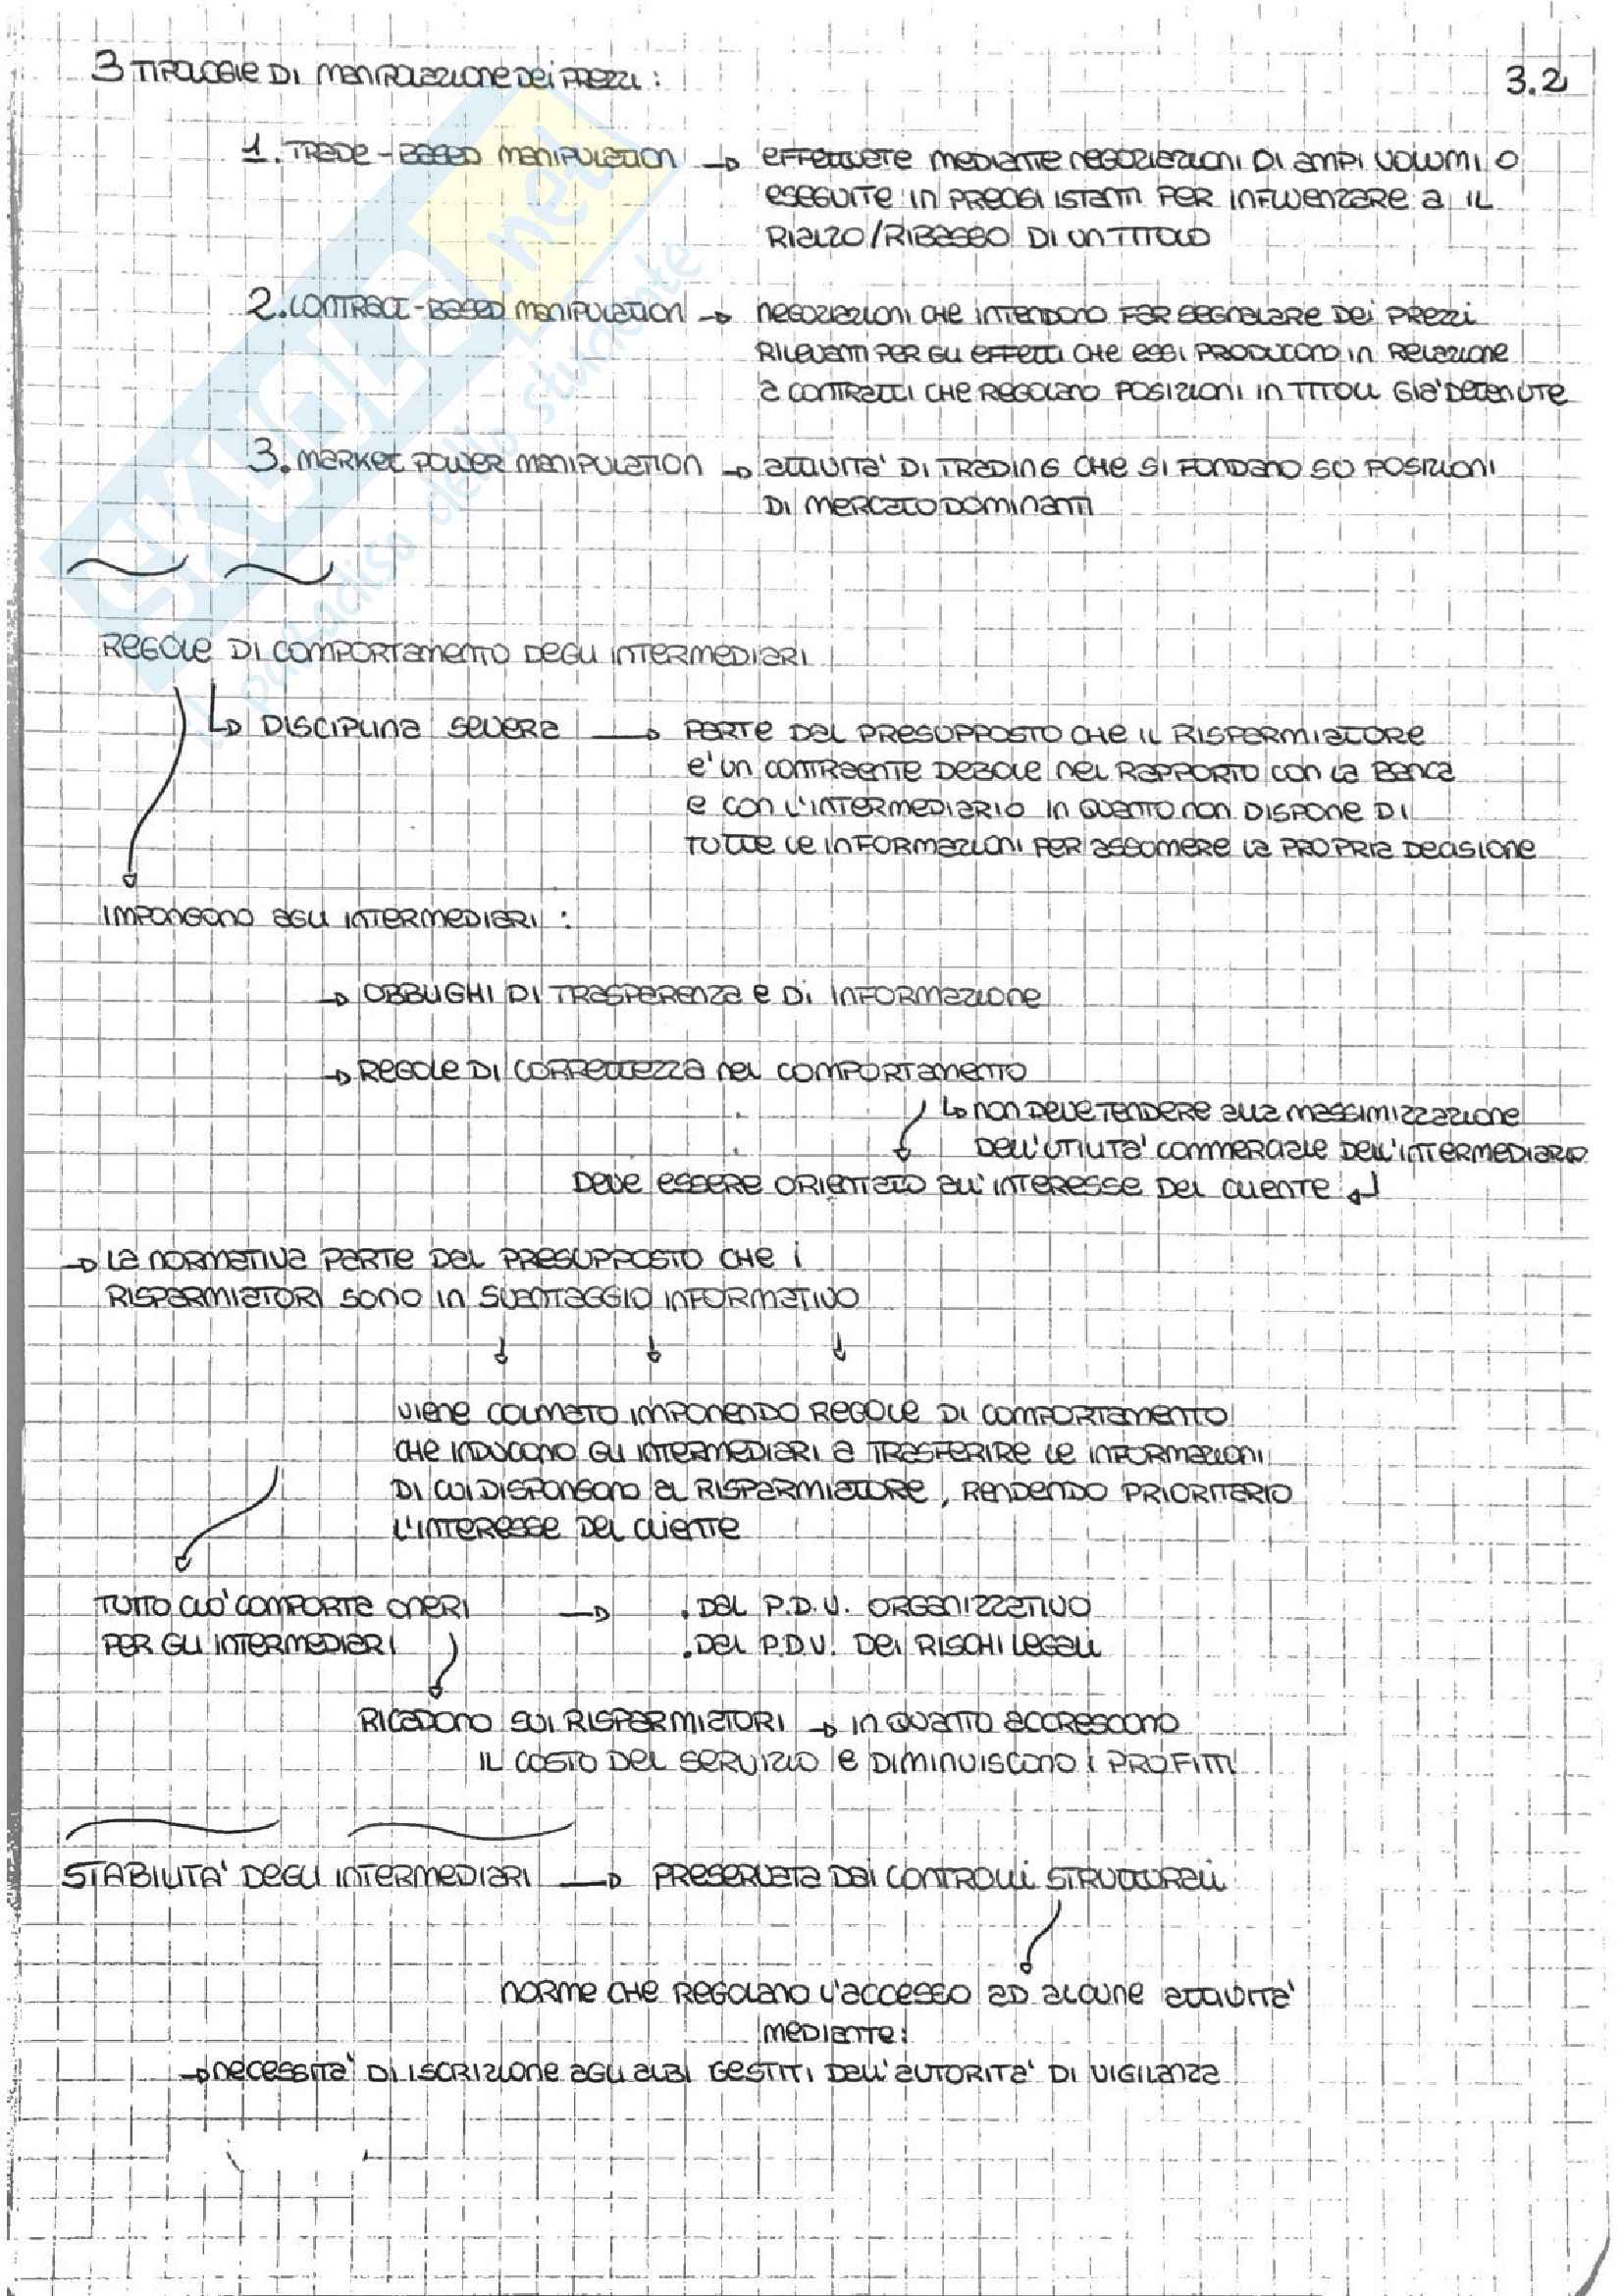 3 TIPOLOGIE DI MANIPOLAZIONE DEI PREZZI :
3.2
1. TRADE-BASED MANIPULATION → EFFETTUATE MEDIANTE NEGOZIAZIONI DI AMPI VOLUMI O
ESEGUITE IN PRECISI ISTANTI PER INFLUENZARE A IL
RIALZO/RIBASSO DI UN TITOLO
2. CONTRACT-BASED MANIPULATION → NEGOZIAZIONI CHE INTENDONO FAR SEGNALARE DEI PREZZI
RILEVANTI PER GLI EFFETTI CHE ESSI PRODUCONO IN RELAZIONE
A CONTRATTI CHE REGOLANO POSIZIONI IN TITOLI GIA' DETENUTE
3. MARKET POWER MANIPULATION → ATTIVITA' DI TRADING CHE SI FONDANO SU POSIZIONI
DI MERCATO DOMINANTI
REGOLE DI COMPORTAMENTO DEGLI INTERMEDIARI
↳ DISCIPLINA SEVERA → PARTE DAL PRESUPPOSTO CHE IL RISPARMIATORE
E' UN CONTRAENTE DEBOLE NEL RAPPORTO CON LA BANCA
E CON L'INTERMEDIARIO IN QUANTO NON DISPONE DI
TUTTE LE INFORMAZIONI PER ASSUMERE LA PROPRIA DECISIONE
IMPONGONO AGLI INTERMEDIARI :
→ OBBLIGHI DI TRASPARENZA E DI INFORMAZIONE
→ REGOLE DI CORRETTEZZA NEL COMPORTAMENTO
↳ NON DEVE TENDERE ALLA MASSIMIZZAZIONE
DELL'UTILITA' COMMERCIALE DELL'INTERMEDIARIO
DEVE ESSERE ORIENTATO ALL'INTERESSE DEL CLIENTE ↲
→ LA NORMATIVA PARTE DAL PRESUPPOSTO CHE I
RISPARMIATORI SONO IN SVANTAGGIO INFORMATIVO
VIENE COLMATO IMPONENDO REGOLE DI COMPORTAMENTO
CHE INDUCONO GLI INTERMEDIARI A TRASFERIRE LE INFORMAZIONI
DI CUI DISPONGONO AL RISPARMIATORE, RENDENDO PRIORITARIO
L'INTERESSE DEL CLIENTE
TUTTO CIO' COMPORTA ONERI → . DAL P.D.V. ORGANIZZATIVO
PER GLI INTERMEDIARI . DAL P.D.V. DEI RISCHI LEGALI
RICADONO SUI RISPARMIATORI → IN QUANTO ACCRESCONO
IL COSTO DEL SERVIZIO E DIMINUISCONO I PROFITTI
STABILITA' DEGLI INTERMEDIARI → PRESERVATA DAI CONTROLLI STRUTTURALI
NORME CHE REGOLANO L'ACCESSO AD ALCUNE ATTIVITA'
MEDIANTE:
→ NECESSITA' DI ISCRIZIONE AGLI ALBI GESTITI DALL'AUTORITA' DI VIGILANZA
SKUOLA.net
il paradiso dello studente